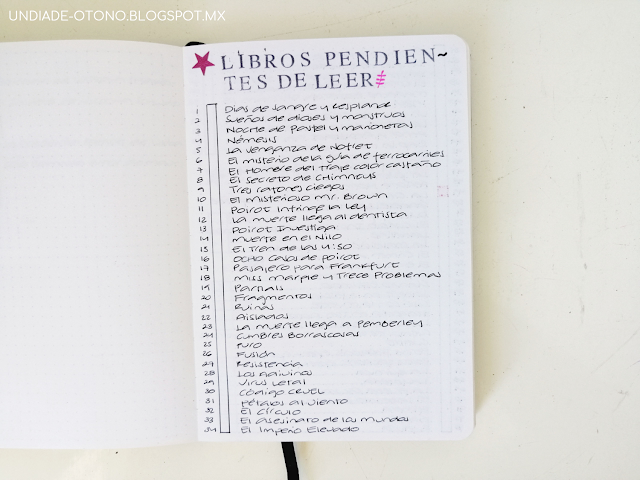 UNDIADE-OTONO.BLOGSPOT.MX
LIBROS PENDIEN~
TES DE LEER
1 Días de sangre y resplandor
2 Sueños de dioses y monstruos
3 Noche de pastel y marionetas
4 Némesis
5 La venganza de Nofret
6 El misterio de la guía de ferrocarriles
7 El Hombre del traje color castaño
8 El Secreto de Chimneys
9 Tres ratones ciegos
10 El misterioso Mr. Brown
11 Poirot infringe la ley
12 La muerte llega al dentista
13 Poirot Investiga
14 Muerte en el Nilo
15 El Tren de las 4:50
16 Ocho Casos de Poirot
17 Pasajero para Frankfurt
18 Miss Marple y Trece Problemas
19 Partials
20 Fragmentos
21 Ruinas
22 Aislados
23 La muerte llega a Pemberley
24 Cumbres Borrascosas
25 Puro
26 Fusión
27 Resistencia
28 Los
29 Virus Letal
30 Código Cruel
31 Pétalos al viento
32 El Círculo
33 El asesinato de los mundos
34 El Imperio Elevado